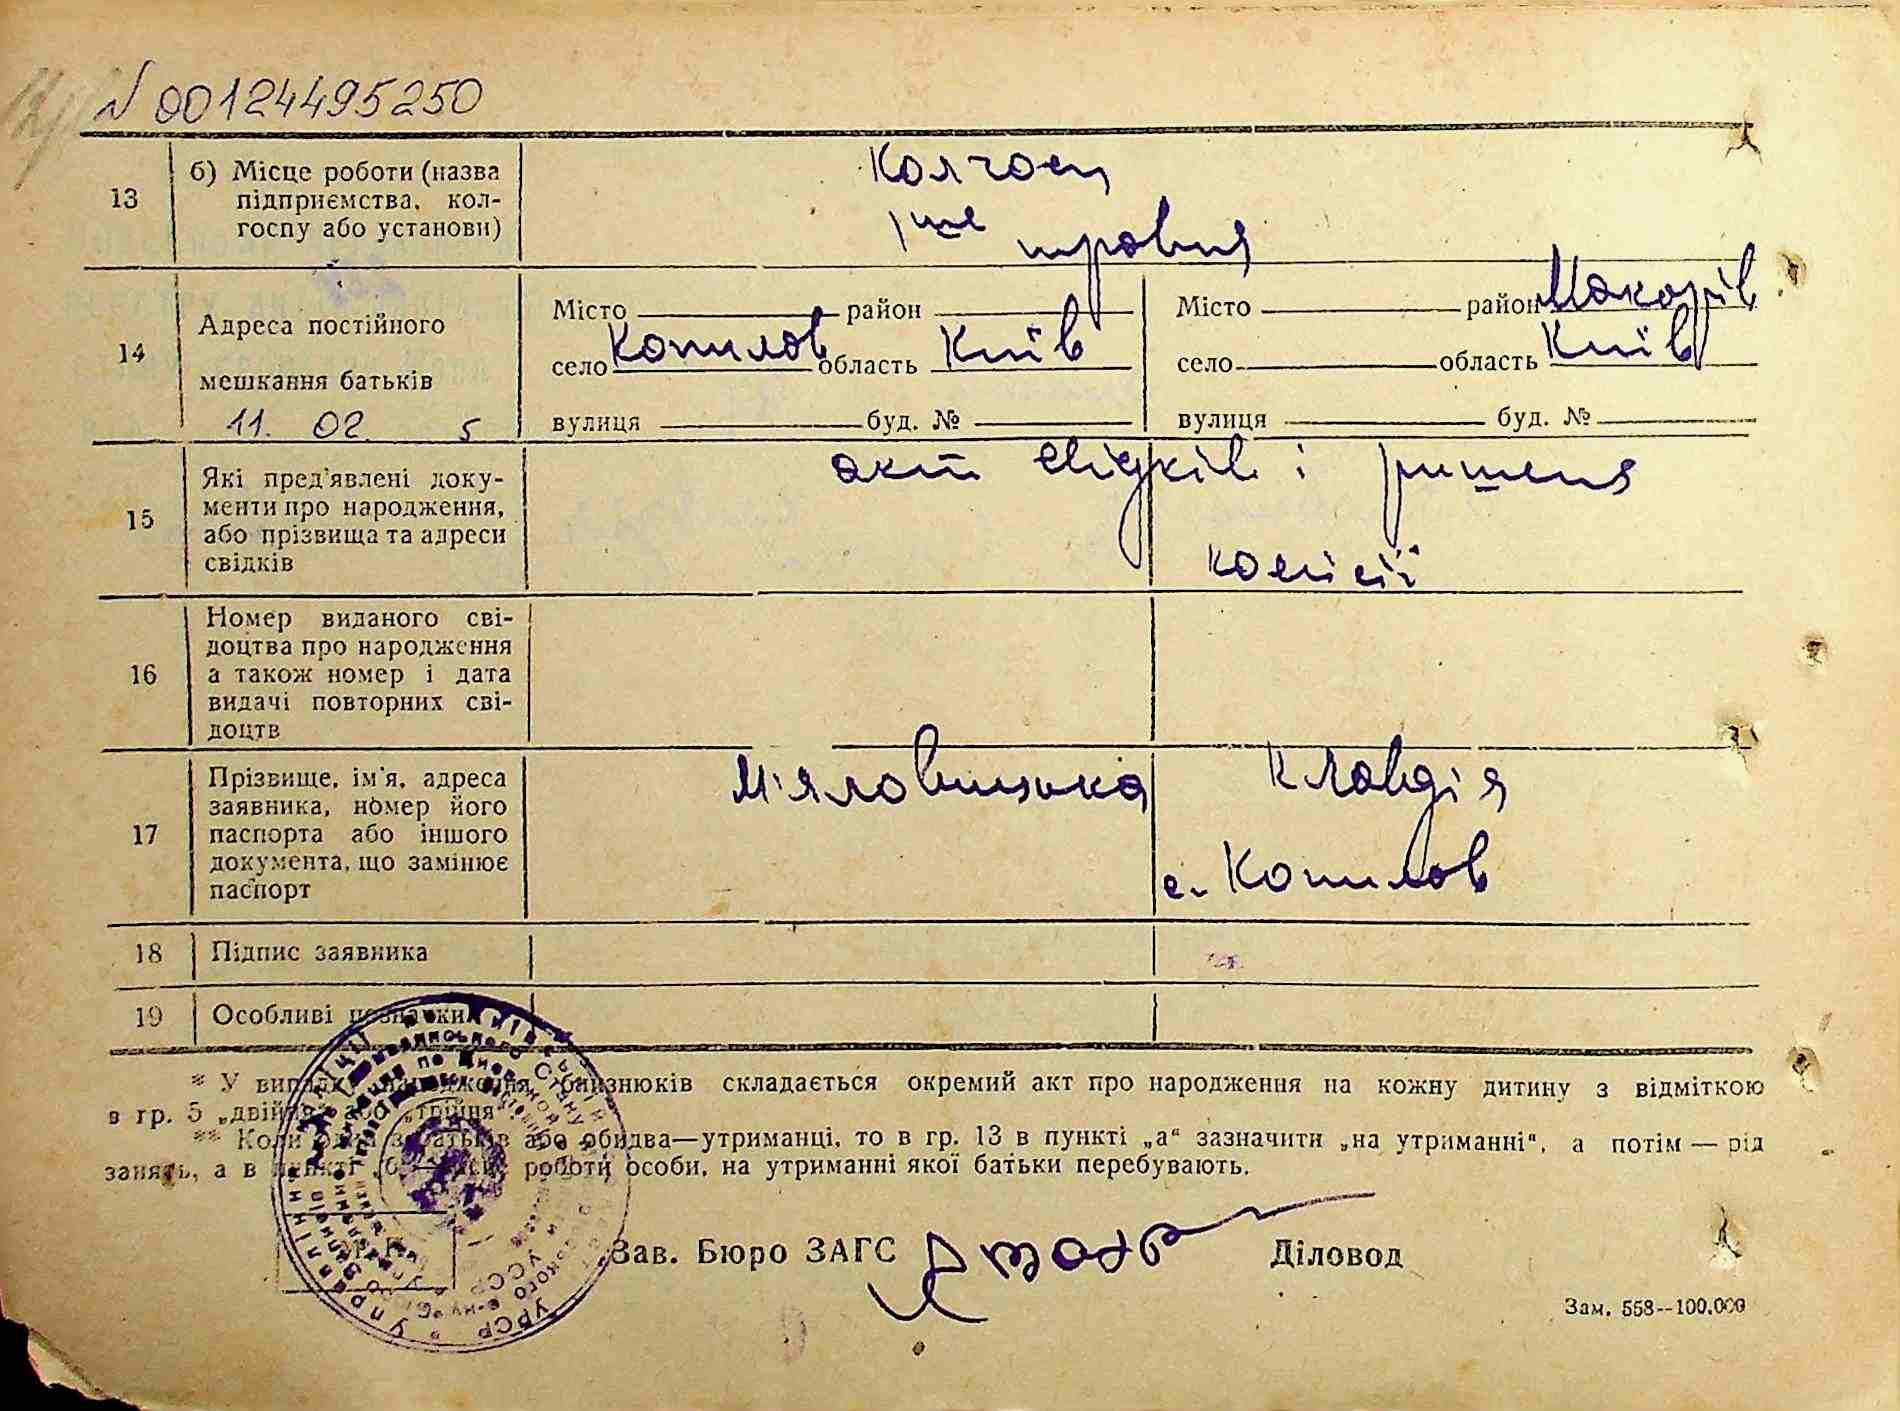 N 00124495250
13 б) Місце роботи (назва підприємства, кол-
госпу або установи)
Колгосп
1ше травня
14 Адреса постійного
мешкання батьків
11. 02. 5
Місто район
село Копилов область Київ
вулиця буд. №
Місто район Макарів
село область Київ
вулиця буд. №
15 Які пред'явлені доку-
менти про народження,
або прізвища та адреси
свідків
акт свідків і ришення
комісії
16 Номер виданого сві-
доцтва про народження
а також номер і дата
видачі повторних сві-
доцтв
17 Прізвище, ім'я, адреса
заявника, номер його
паспорта або іншого
документа, що замінює
паспорт
М'яловицька Клавдія
с. Копилов
18 Підпис заявника
19 Особливі позначки
* У випадку народження близнюків складається окремий акт про народження на кожну дитину з відміткою
в гр. 5 „двійня" або „трійня".
** Коли один з батьків або обидва—утриманці, то в гр. 13 в пункті „а" зазначити „на утриманні", а потім — рід
занять, а в пункті „б" — роботи особи, на утриманні якої батьки перебувають.
Зав. Бюро ЗАГС Діловод
Зам. 558--100.000